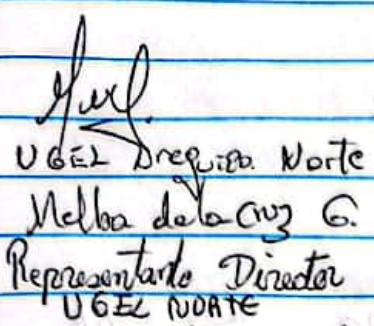 UGEL Arequipa Norte
Melba de la Cruz G.
Representante Director
UGEL NORTE